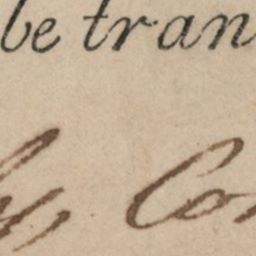 be tran
by, Con